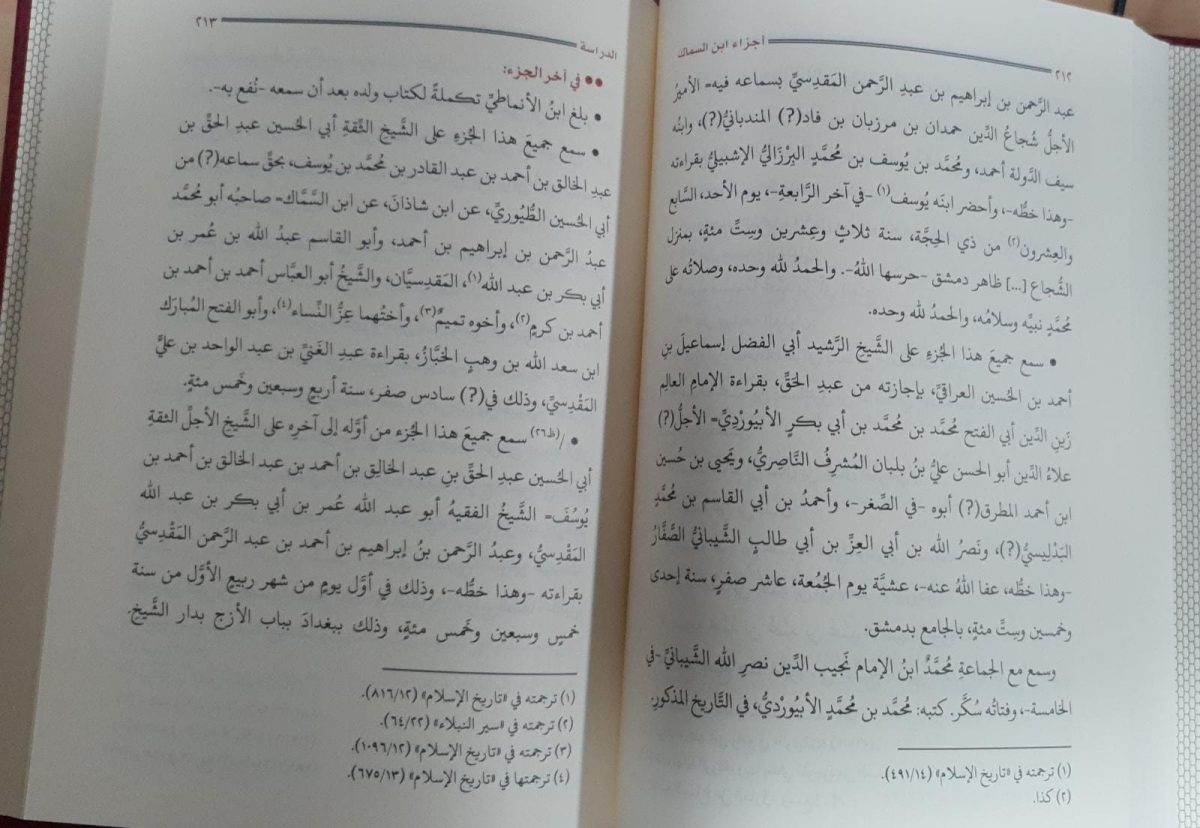 ٢١٢
أجزاء ابن السماك
عبد الرَّحمن بن إبراهيم بن عبدِ الرَّحمن المَقدِسيِّ بسماعه فيه= الأميرُ
الأجلُّ شُجاعُ الدِّين حمدان بن مرزبان بن فاد(?) المندبانيُّ(?)، وابنُه
سيف الدَّولة أحمد، ومحمَّد بن يُوسف بن مُحمَّدٍ البِرْزَاليُّ الإشبيليُّ بقراءته
-وهذا خطُّه-، وأحضر ابنَه يُوسف(١) -في آخر الرَّابعةِ-، يوم الأحد، السَّابع
والعِشرون(٢) من ذي الحِجَّة، سنة ثلاثٍ وعِشرين وسِتِّ مئةٍ، بمنزل
الشُّجاع [...] ظاهر دمشق -حرسها اللهُ-. والحمدُ لله وحده، وصلاتُه على
مُحمَّدٍ نبيِّه وسلامُه، والحمدُ لله وحده.
• سمع جميعَ هذا الجُزءِ على الشَّيخ الرَّشيد أبي الفضل إسماعيلَ بنِ
أحمد بن الحُسين العراقيِّ، بإجازته من عبدِ الحَقِّ، بقراءة الإمامِ العالِم
زَينِ الدِّين أبي الفتح مُحمَّد بن مُحمَّد بن أبي بكرٍ الأَبِيْوَرْدِيِّ= الأجلُّ(?)
علاءُ الدِّين أبو الحسن عليُّ بنُ بلبان المُشرِفُ النَّاصِريُّ، ويَحيى بن حُسين
ابن أحمد المطرق(?) أبوه -في الصِّغر-، وأحمدُ بن أبي القاسم بن مُحمَّدٍ
البَدْلِيسيُّ(?)، ونَصرُ الله بن أبي العِزِّ بن أبي طالبٍ الشَّيبانيُّ الصَّفَّارُ
-وهذا خطُّه، عفا اللهُ عنه-، عشيَّة يوم الجُمُعة، عاشر صفرٍ، سنة إحدى
وخمسين وسِتِّ مئةٍ، بالجامع بدمشق.
وسمع مع الجماعةِ مُحمَّدٌ ابنُ الإمام نَجيب الدِّين نصرِ الله الشَّيبانيِّ -في
الخامسة-، وفتاتُه سُكَّر. كتبه: مُحمَّد بن مُحمَّدٍ الأَبِيْوَرْديُّ، في التَّاريخ المذكورِ.
(١) ترجمته في «تاريخ الإسلام» (٤٩١/١٤).
(٢) كذا.
الدراسة
٢١٣
●● في آخر الجزء:
• بلغ ابنُ الأنماطيِّ تكملةً لكتاب ولده بعد أن سمعه -نُفع به-.
• سمع جميعَ هذا الجُزءِ على الشَّيخ الثِّقةِ أبي الحُسين عبدِ الحقِّ بن
عبدِ الخالق بن أحمد بن عبد القادر بن مُحمَّد بن يُوسف، بحقِّ سماعه(?) من
أبي الحُسين الطُّيُوريِّ، عن ابن شاذانَ، عن ابن السَّمَّاك= صاحبُه أبو مُحمَّد
عبدُ الرَّحمن بن إبراهيم بن أحمد، وأبو القاسم عبدُ الله بن عُمر بن
أبي بكر بن عبد الله(١)، المَقدِسيَّان، والشَّيخُ أبو العبَّاس أحمد بن أحمد بن
أحمد بن كرمٍ(٢)، وأخوه تميمٌ(٣)، وأختُهما عِزُّ النِّساء(٤)، وأبو الفتح المُبارَك
ابن سعد الله بن وهبٍ الخبَّازُ، بقراءة عبدِ الغَنيِّ بن عبد الواحد بن عليٍّ
المَقْدِسيِّ، وذلك في(?) سادس صفر، سنة أربع وسبعين وخَمس مئةٍ.
• /(ظ٢٦) سمع جميعَ هذا الجُزء من أوَّله إلى آخرِه على الشَّيخ الأجلِّ الثقةِ
أبي الحُسين عبدِ الحقِّ بنِ عبد الخالِق بن أحمد بن عبد الخالق بن أحمد بن
يُوسُفَ= الشَّيخُ الفقيهُ أبو عبد الله عُمر بن أبي بكر بن عبد الله
المَقْدِسيُّ، وعبدُ الرَّحمن بنُ إبراهيم بن أحمد بن عبد الرَّحمن المَقْدِسيُّ
بقراءته -وهذا خطُّه-، وذلك في أوَّل يومٍ من شهر ربيعٍ الأوَّل من سنة
خمسٍ وسبعين وخَمس مئةٍ، وذلك ببغدادَ بباب الأزج بدار الشَّيخِ.
(١) ترجمته في «تاريخ الإسلام» (٨١٦/١٢).
(٢) ترجمته في «سير النبلاء» (٦٤/٢٢).
(٣) ترجمته في «تاريخ الإسلام» (١٠٩٦/١٢).
(٤) ترجمتها في «تاريخ الإسلام» (٦٧٥/١٣).